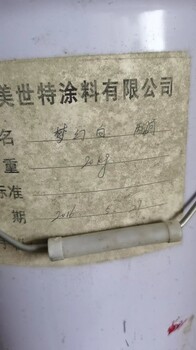 美世特涂料有限公司
名 梦幻白
重 20kg
标准
期 2016